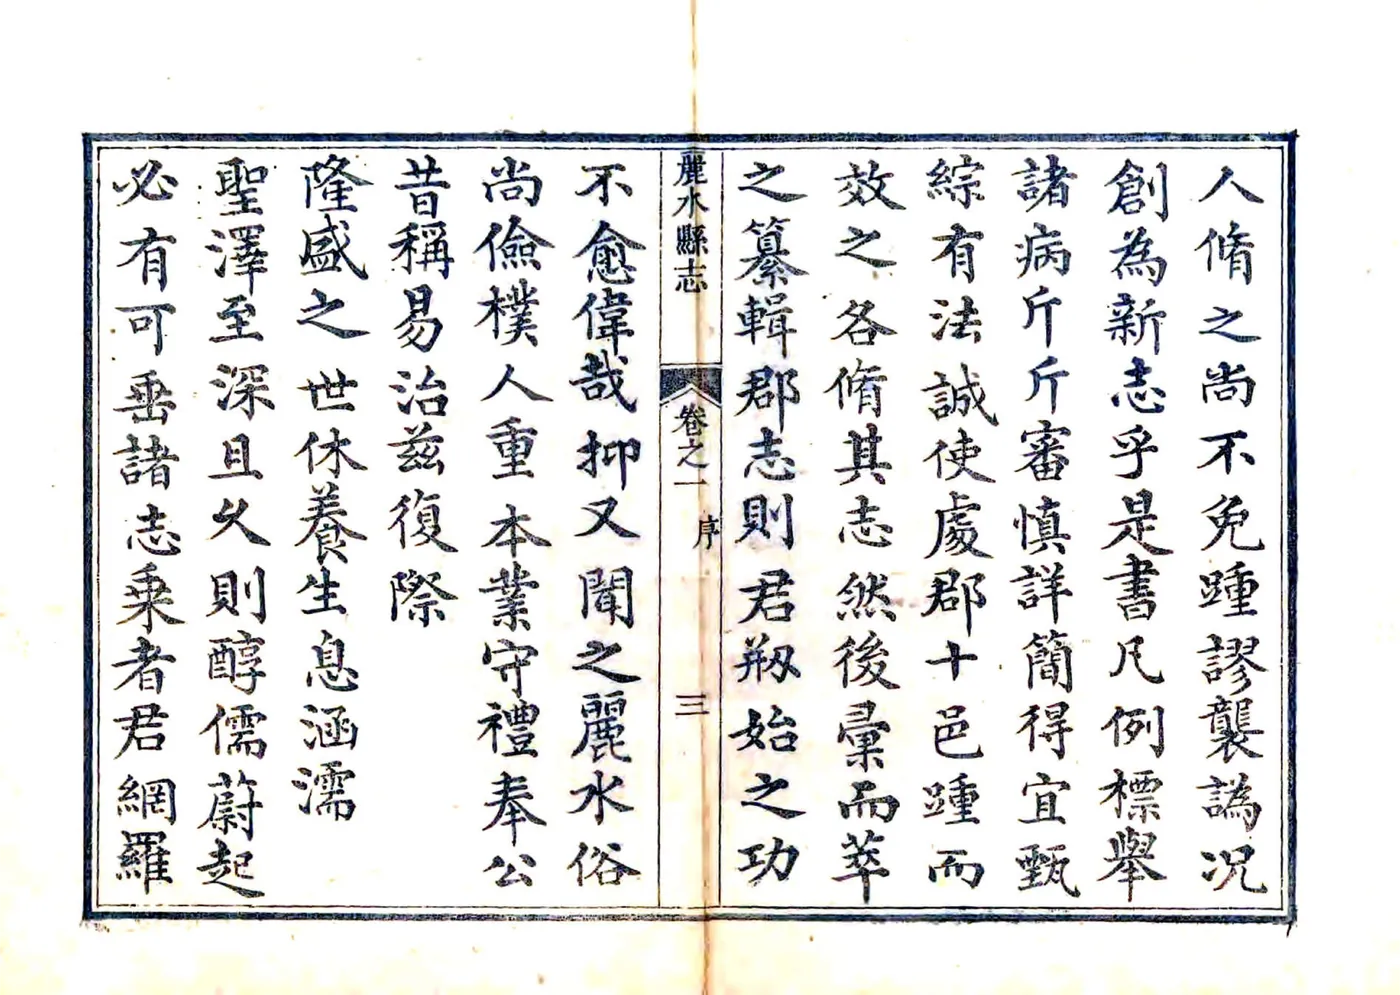 人脩之尚不免踵謬襲譌况
創為新志乎是書凡例標舉
諸病斤斤審慎詳簡得宜甄
綜有法誠使處郡十邑踵而
效之各脩其志然後彚而萃
之纂輯郡志則君剏始之功
麗水縣志
卷之一
序
三
不愈偉哉抑又聞之麗水俗
尚儉樸人重本業守禮奉公
昔稱易治兹復際
隆盛之世休養生息涵濡
聖澤至深且久則醇儒蔚起
必有可垂諸志乘者君網羅